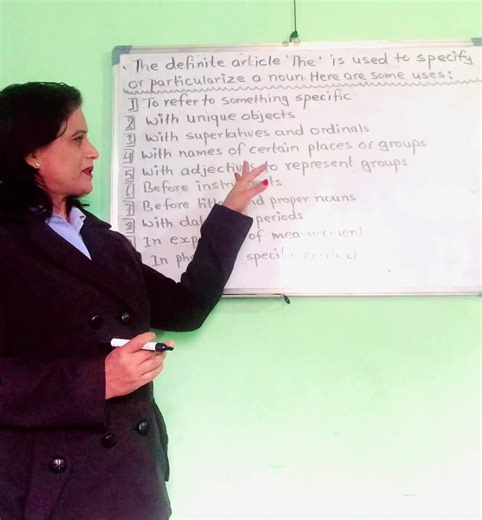 The definite article 'The' is used to specify
or particularize a noun. Here are some uses:
1 To refer to something specific
2 With unique objects
3 With superlatives and ordinals
4 With names of certain places or groups
5 With adjectives to represent groups
Before instruments
7 Before and proper nouns
8 With periods
In of measurement
In specific